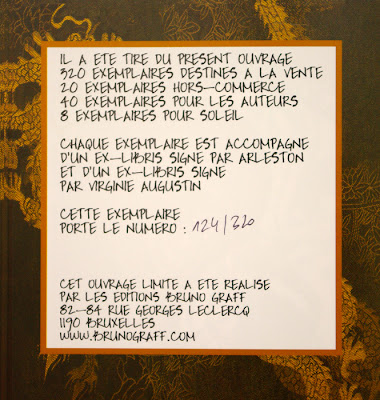 IL A ETE TIRE DU PRESENT OUVRAGE
320 EXEMPLAIRES DESTINES A LA VENTE
20 EXEMPLAIRES HORS-COMMERCE
40 EXEMPLAIRES POUR LES AUTEURS
8 EXEMPLAIRES POUR SOLEIL
CHAQUE EXEMPLAIRE EST ACCOMPAGNE
D'UN EX-LIBRIS SIGNE PAR ARLESTON
ET D'UN EX-LIBRIS SIGNE
PAR VIRGINIE AUGUSTIN
CETTE EXEMPLAIRE
PORTE LE NUMERO : 124/320
CET OUVRAGE LIMITE A ETE REALISE
PAR LES EDITIONS BRUNO GRAFF
82-84 RUE GEORGES LECLERCQ
1190 BRUXELLES
WWW.BRUNOGRAFF.COM